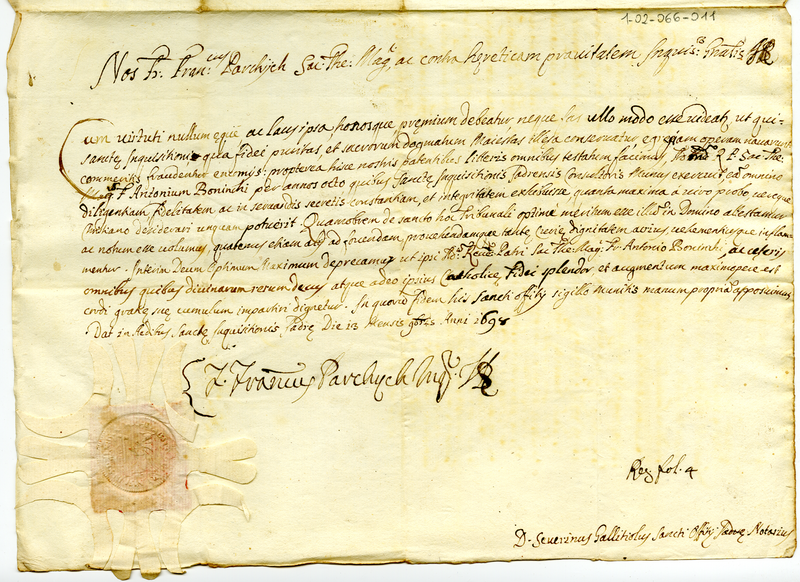 1-02-066-011
Nos Fr. Fran.cus Parchych Sac: The: Mag.r ac contra hęreticam pravitatem Inquis.r Gñalis
Cum virtuti nullum ęque ac laus ipsa honosque, pręmium debeatur neque fas ullo modo esse videat.r, ut qui
sanctę Inquisitioni qua fidei puritas, et sacrorum dogmatum Maiestas illesa conservatur, egregiam operam navarunt
commeritis fraudentur encomijs: propterea hisce nostris patentibus litteris omnibus testatum facimus, R. P. Sac: The:
Mag. F. Antonium Boninchi per annos octo quibus Sanctę Inquisitionis Jadrensis Consultoris Munus exercuit eã omnino
diligentiam, fidelitatem ac in servandis secretis constantiam, et integritatem extitisse, quanta maxima à viro probo, vereque
desiderari unquam potuerit. Quamobrem de sancto hoc Tribunali optime meritum esse illud in Domino attestamur
ac notum esse volumus, quatenus etiam alij ad fovendam, provehendamque tante Crucis dignitatem acrius, vehementiusque inflam-
mentur. Interim Deum Optimum Maximum deprecamur ut ipsi Re.do Patri Sac: The: Mag: Fr: Antonio Boninchi, ac ceteris
omnibus quibus divinarum rerum decus atque adeo ipsius Catholicę fidei splendor et augmentum maximopere est
cordi gratię suę cumulum impartiri dignetur. In quorum fidem his Sancti Offitij sigillo munitis manum propriã apposuimus
Dat. in Aedibus Sanctę Inquisitionis Jadrę Die 13 Mensis 9bris Anni 1698
F. Franćus Parchych Inq.r
Reg. fol. 4
D. Severinus Gallitiolus Sancti Offitij Jadrę Notarius